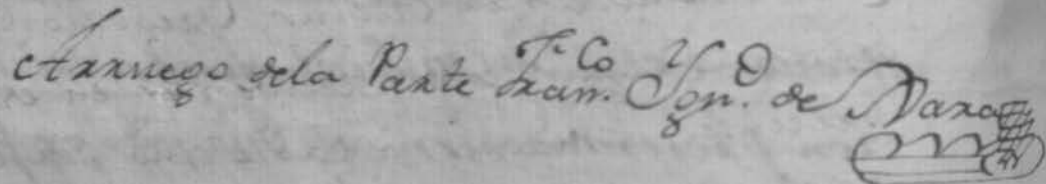 Arruego dela Parte Fran.co Ygn.o de Nara